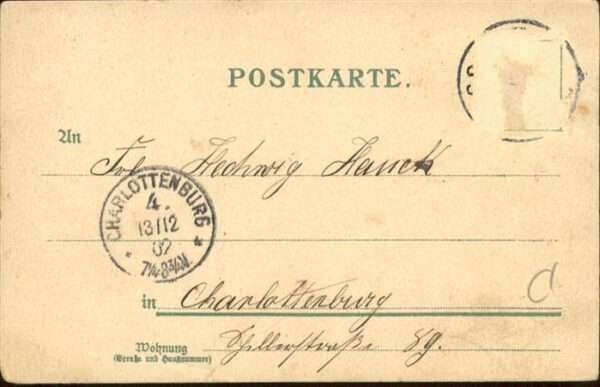 POSTKARTE.
An
Frl. Hedwig Hauck
CHARLOTTENBURG
4.
13/12
02
7¼-8¾N.
in Charlottenburg
Wohnung
(Straße und Hausnummer)
Schillerstraße 89.
C